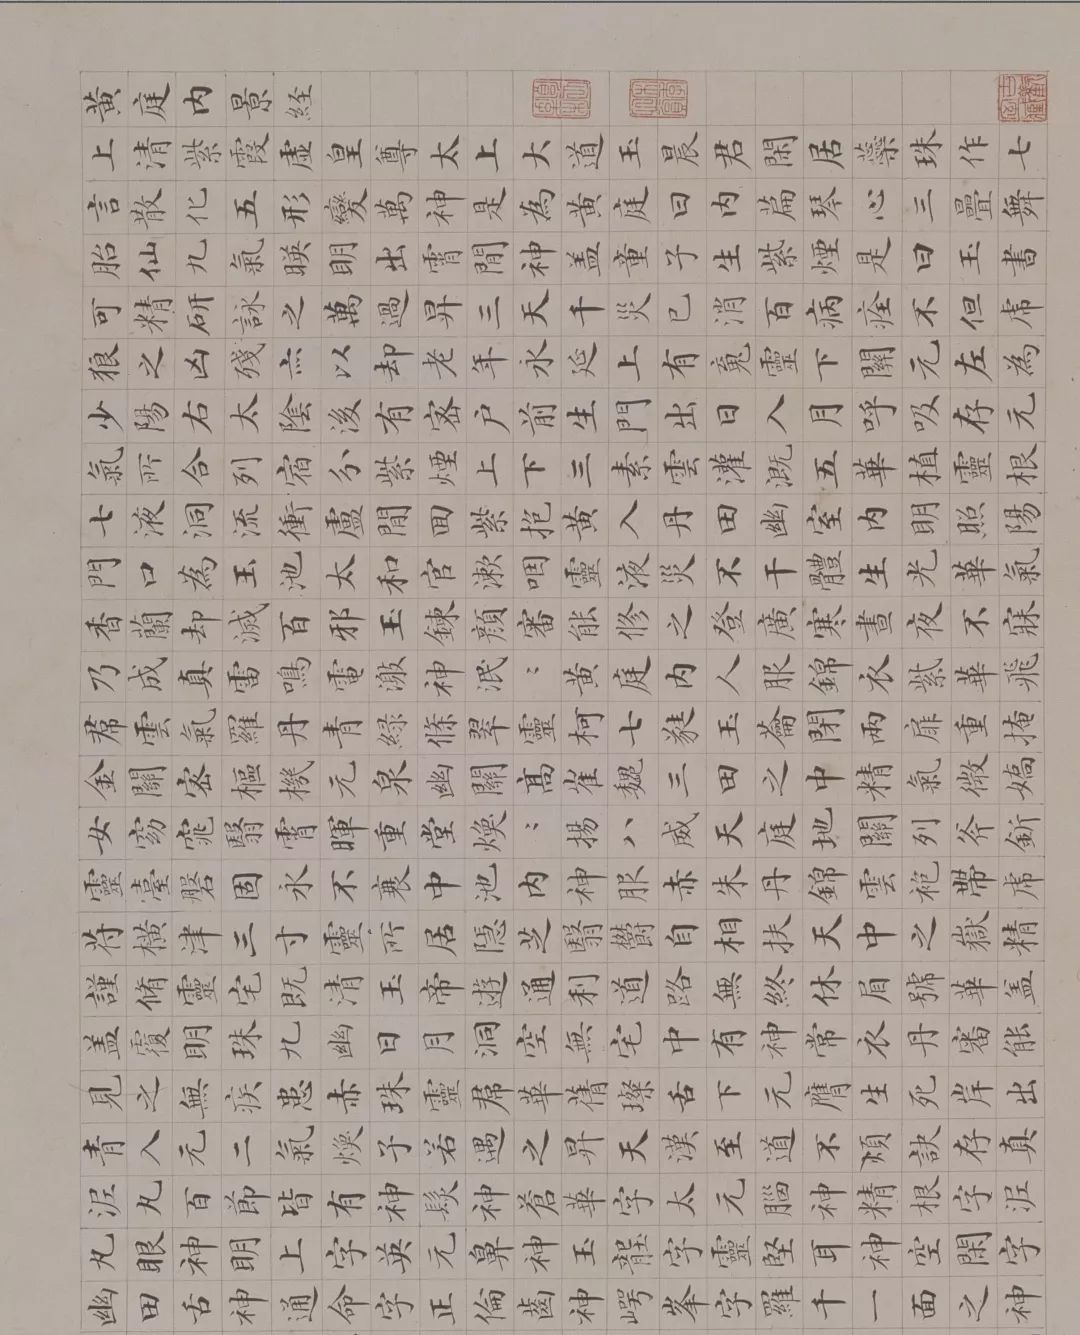 黃庭内景経
上清紫霞虛皇尊太上大道玉晨君閑居蘂珠作七
言散化五形變萬神是為黃庭曰内篇琴心三疊舞
胎仙九氣暎明出霄間神盖童子生紫煙是曰玉書
可精研詠之萬過昇三天千災已消百病痊不但虎
狼之凶殘亦以却老年永延上有䰟靈下關元左為
少陽右太陰後有密户前生門出日入月呼吸存元
氣所合列宿分紫煙上下三素雲灌溉五華植靈根
七液洞流衝盧間囬紫抱黃入丹田幽室内明照陽
門口為玉池太和官漱咽靈液災不干體生光華氣
香蘭却滅百邪玉鍊顏審能修之登廣寒晝夜不寐
乃成真雷鳴電激神泯〻黃庭内人服錦衣紫華飛
帬雲氣羅丹青綠條翠靈柯七蕤玉蘥閉兩扉重掩
金關密樞機元泉幽關高崔巍三田之中精氣微嬌
女窈窕翳霄暉重堂煥〻揚八威天庭地關列斧釿
靈臺磐固永不衰中池内神服赤朱丹錦雲袍帶虎
符橫津三寸靈所居隱芝翳鬱自相扶天中之嶽精
謹脩靈宅既清玉帝遊通利道路無終休眉號華盖
盖覆明珠九幽日月洞空無宅中有神常衣丹審能
見之無疾患赤珠靈帬華蒨璨舌下元膺生死岸出
青入元二氣煥子若遇之昇天漢至道不煩訣存真
泥丸百節皆有神髮神蒼華字太元腦神精根字泥
丸眼神明上字英元鼻神玉壟字靈堅耳神空閑字
幽田舌神通命字正倫齒神崿峯字羅千一面之神